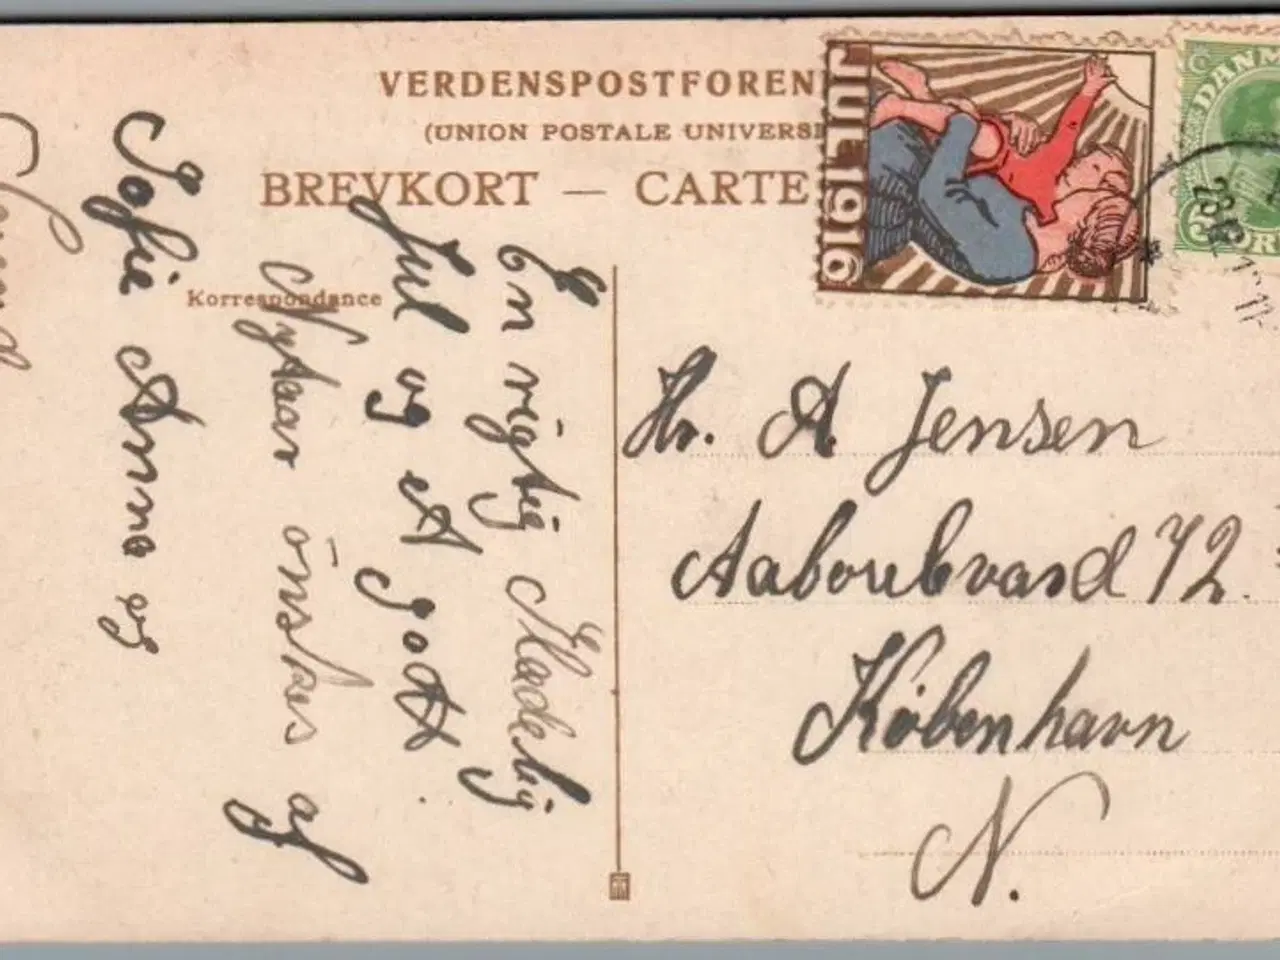 VERDENSPOSTFOREN
(UNION POSTALE UNIVERS
BREVKORT — CARTE
Korrespondance
JUL 1916
DANM
En rigtig Glædelig
Jul og et godt
Nytaar önskes af
Sofie Anna og
Hr. A. Jensen
Aaboulevard 72.
København
N.